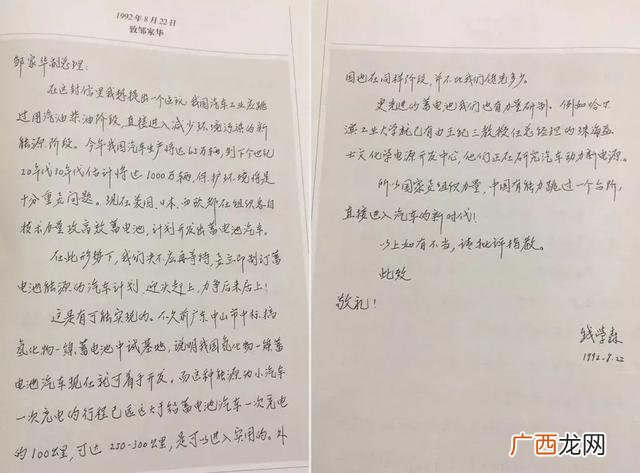 1992年8月22日
致邹家华
邹家华副总理：
在这封信里我想提出一个建议：我国汽车工业应跳
过用汽油柴油阶段，直接进入减少环境污染的新
能源阶段。今年我国汽车生产将达65万辆，到下个世纪
20年代30年代估计将达1000万辆，保护环境将是
十分重要问题。现在美国、日本、西欧都在组织各自
技术力量攻高效蓄电池，计划开发出蓄电池汽车。
在此形势下，我们决不应再等待，要立即制订蓄
电池能源的汽车计划，迎头赶上，力争后来居上！
这是有可能实现的。不久前广东中山市中标，搞
氢化物一镍蓄电池中试基地，说明我国氢化物一镍蓄
电池汽车现在就可着手开发。而这种能源为小汽车
一次充电的行程已远大于铅蓄电池汽车一次充电
的100公里，可达250-300公里，是可以进入实用的。外
国也在同样阶段，并不比我们领先多少。
更先进的蓄电池我们也有力量研制。例如哈尔
滨工业大学就已有由王纪三教授任总经理的珠海益
士文化学电源开发中心，他们正在研究汽车动力新电源。
所以国家要组织力量，中国有能力跳过一个台阶，
直接进入汽车的新时代！
以上如有不当，请批评指教。
此致
敬礼！
钱学森
1992.8.22
广西龙网